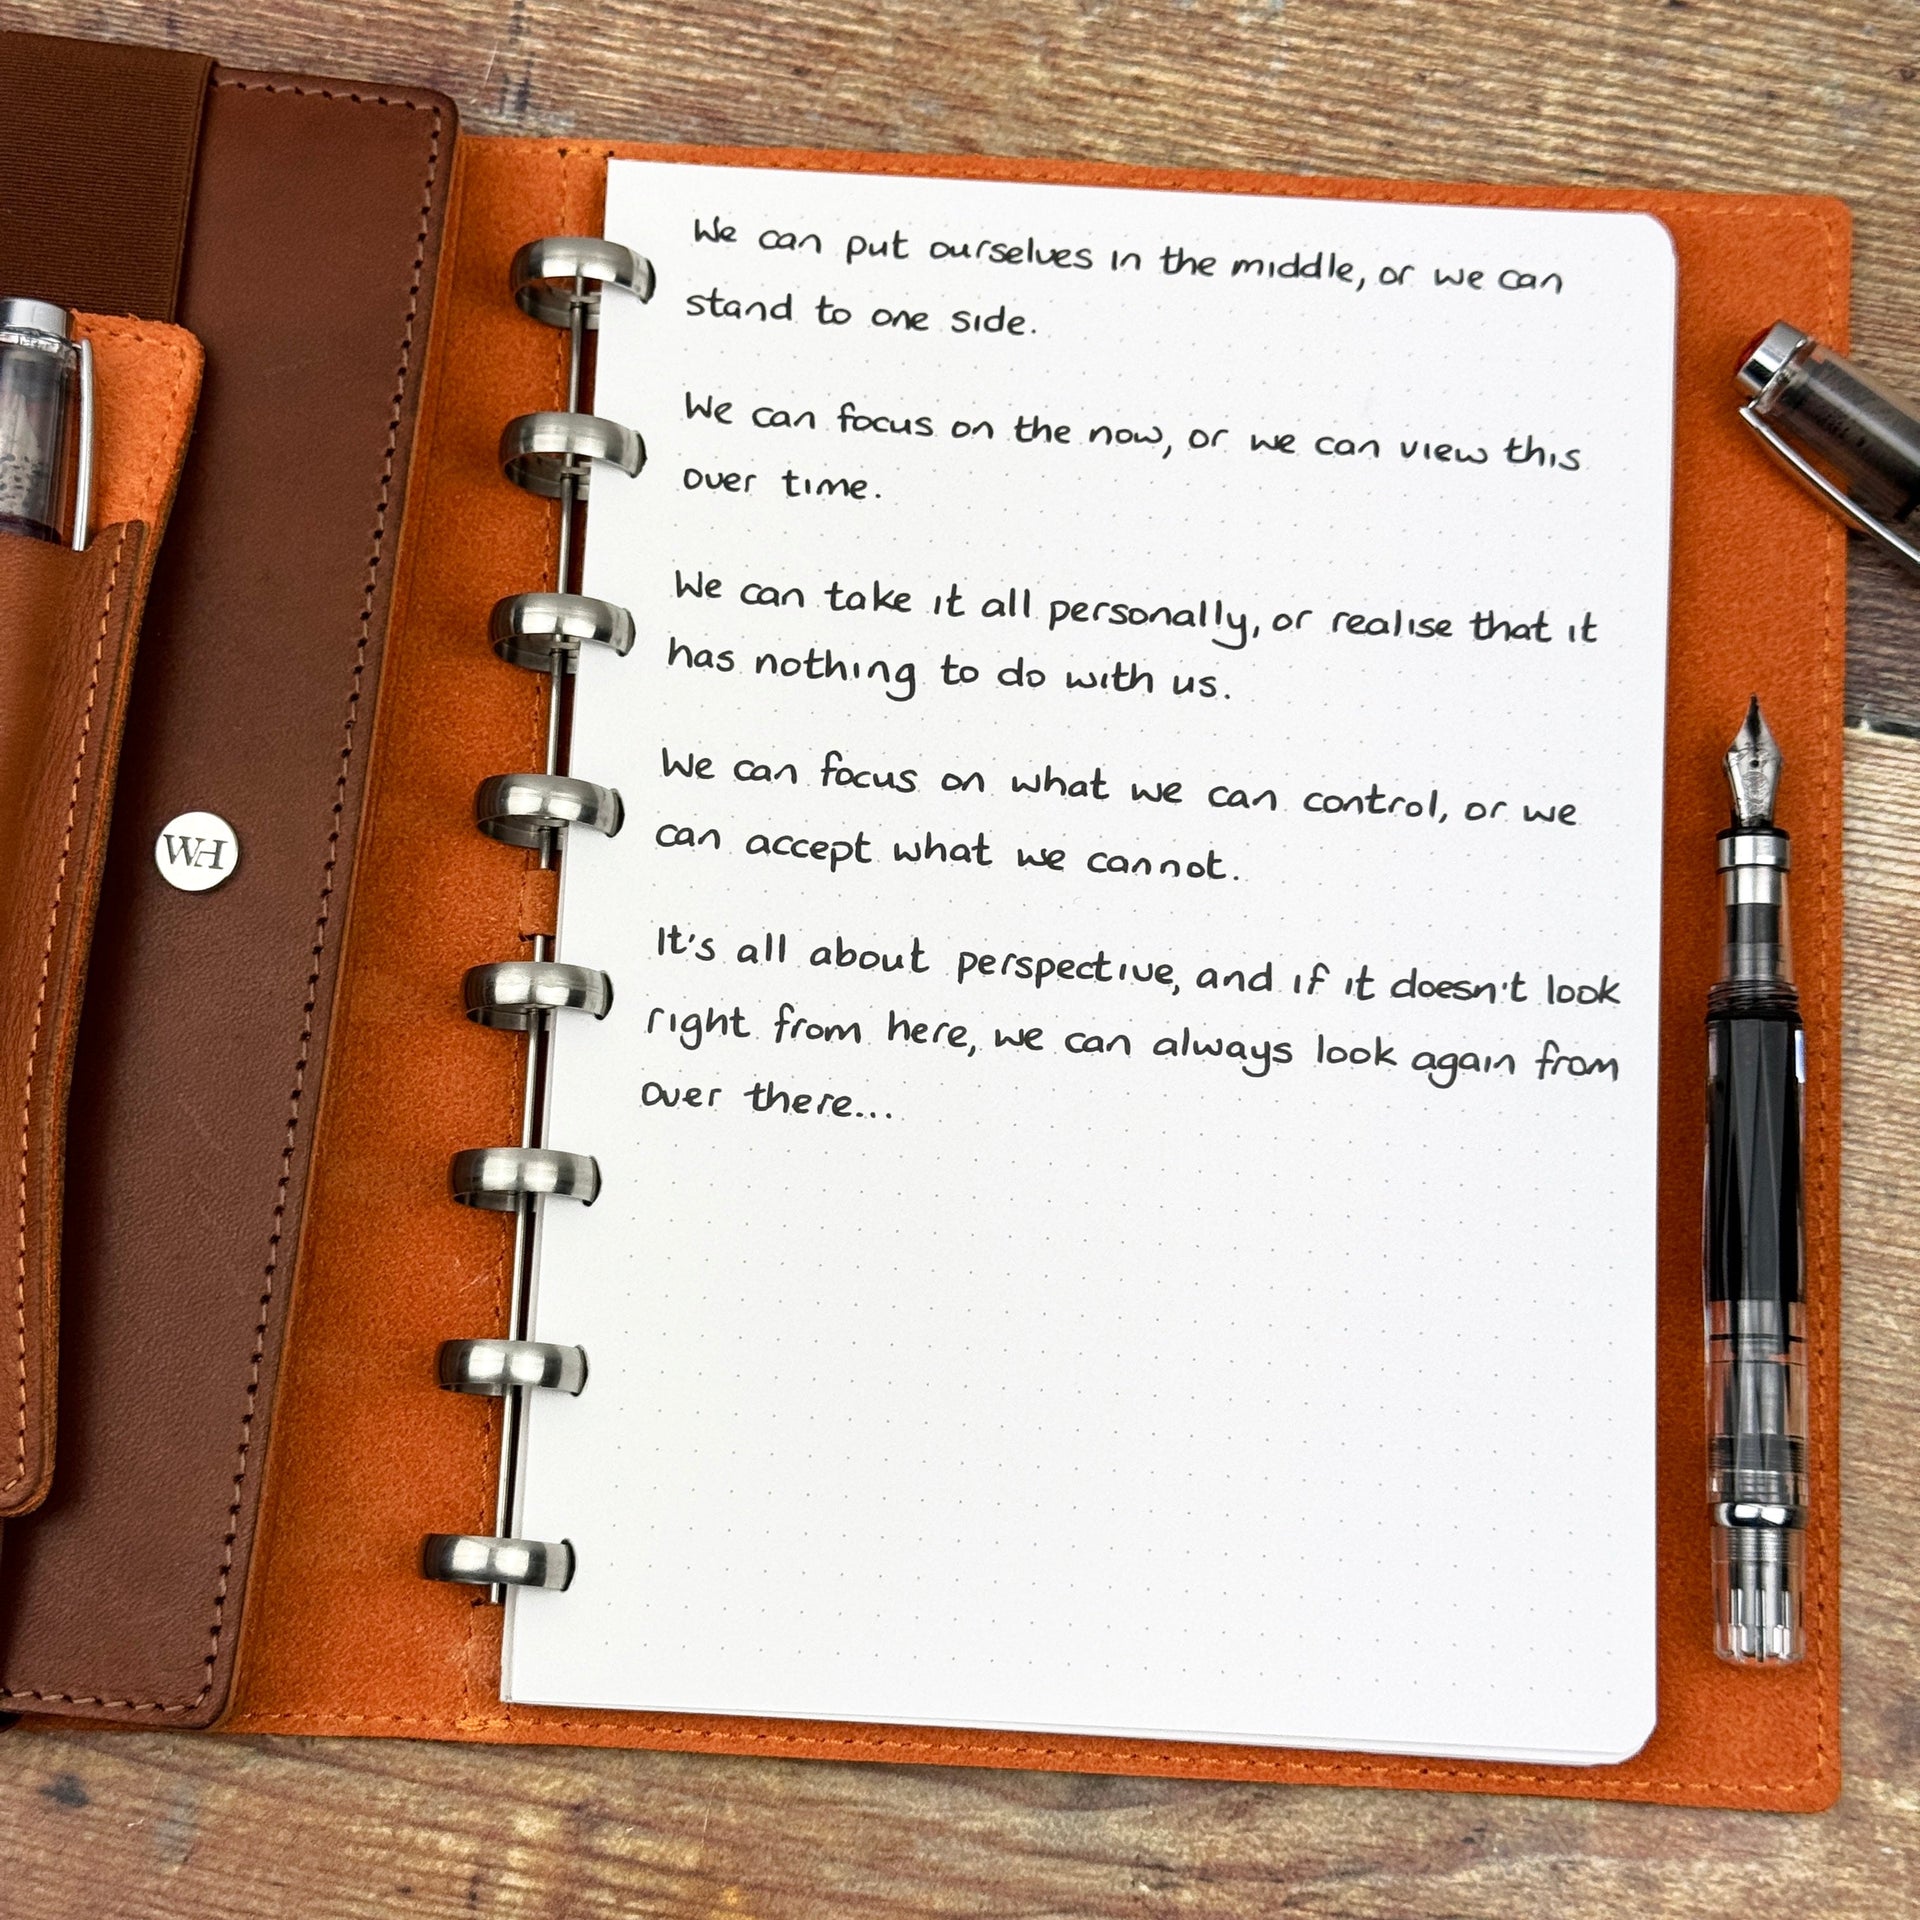 We can put ourselves in the middle, or we can
stand to one side.
We can focus on the now, or we can view this
over time.
We can take it all personally, or realise that it
has nothing to do with us.
We can focus on what we can control, or we
can accept what we cannot.
It's all about perspective, and if it doesn't look
right from here, we can always look again from
over there...
WH